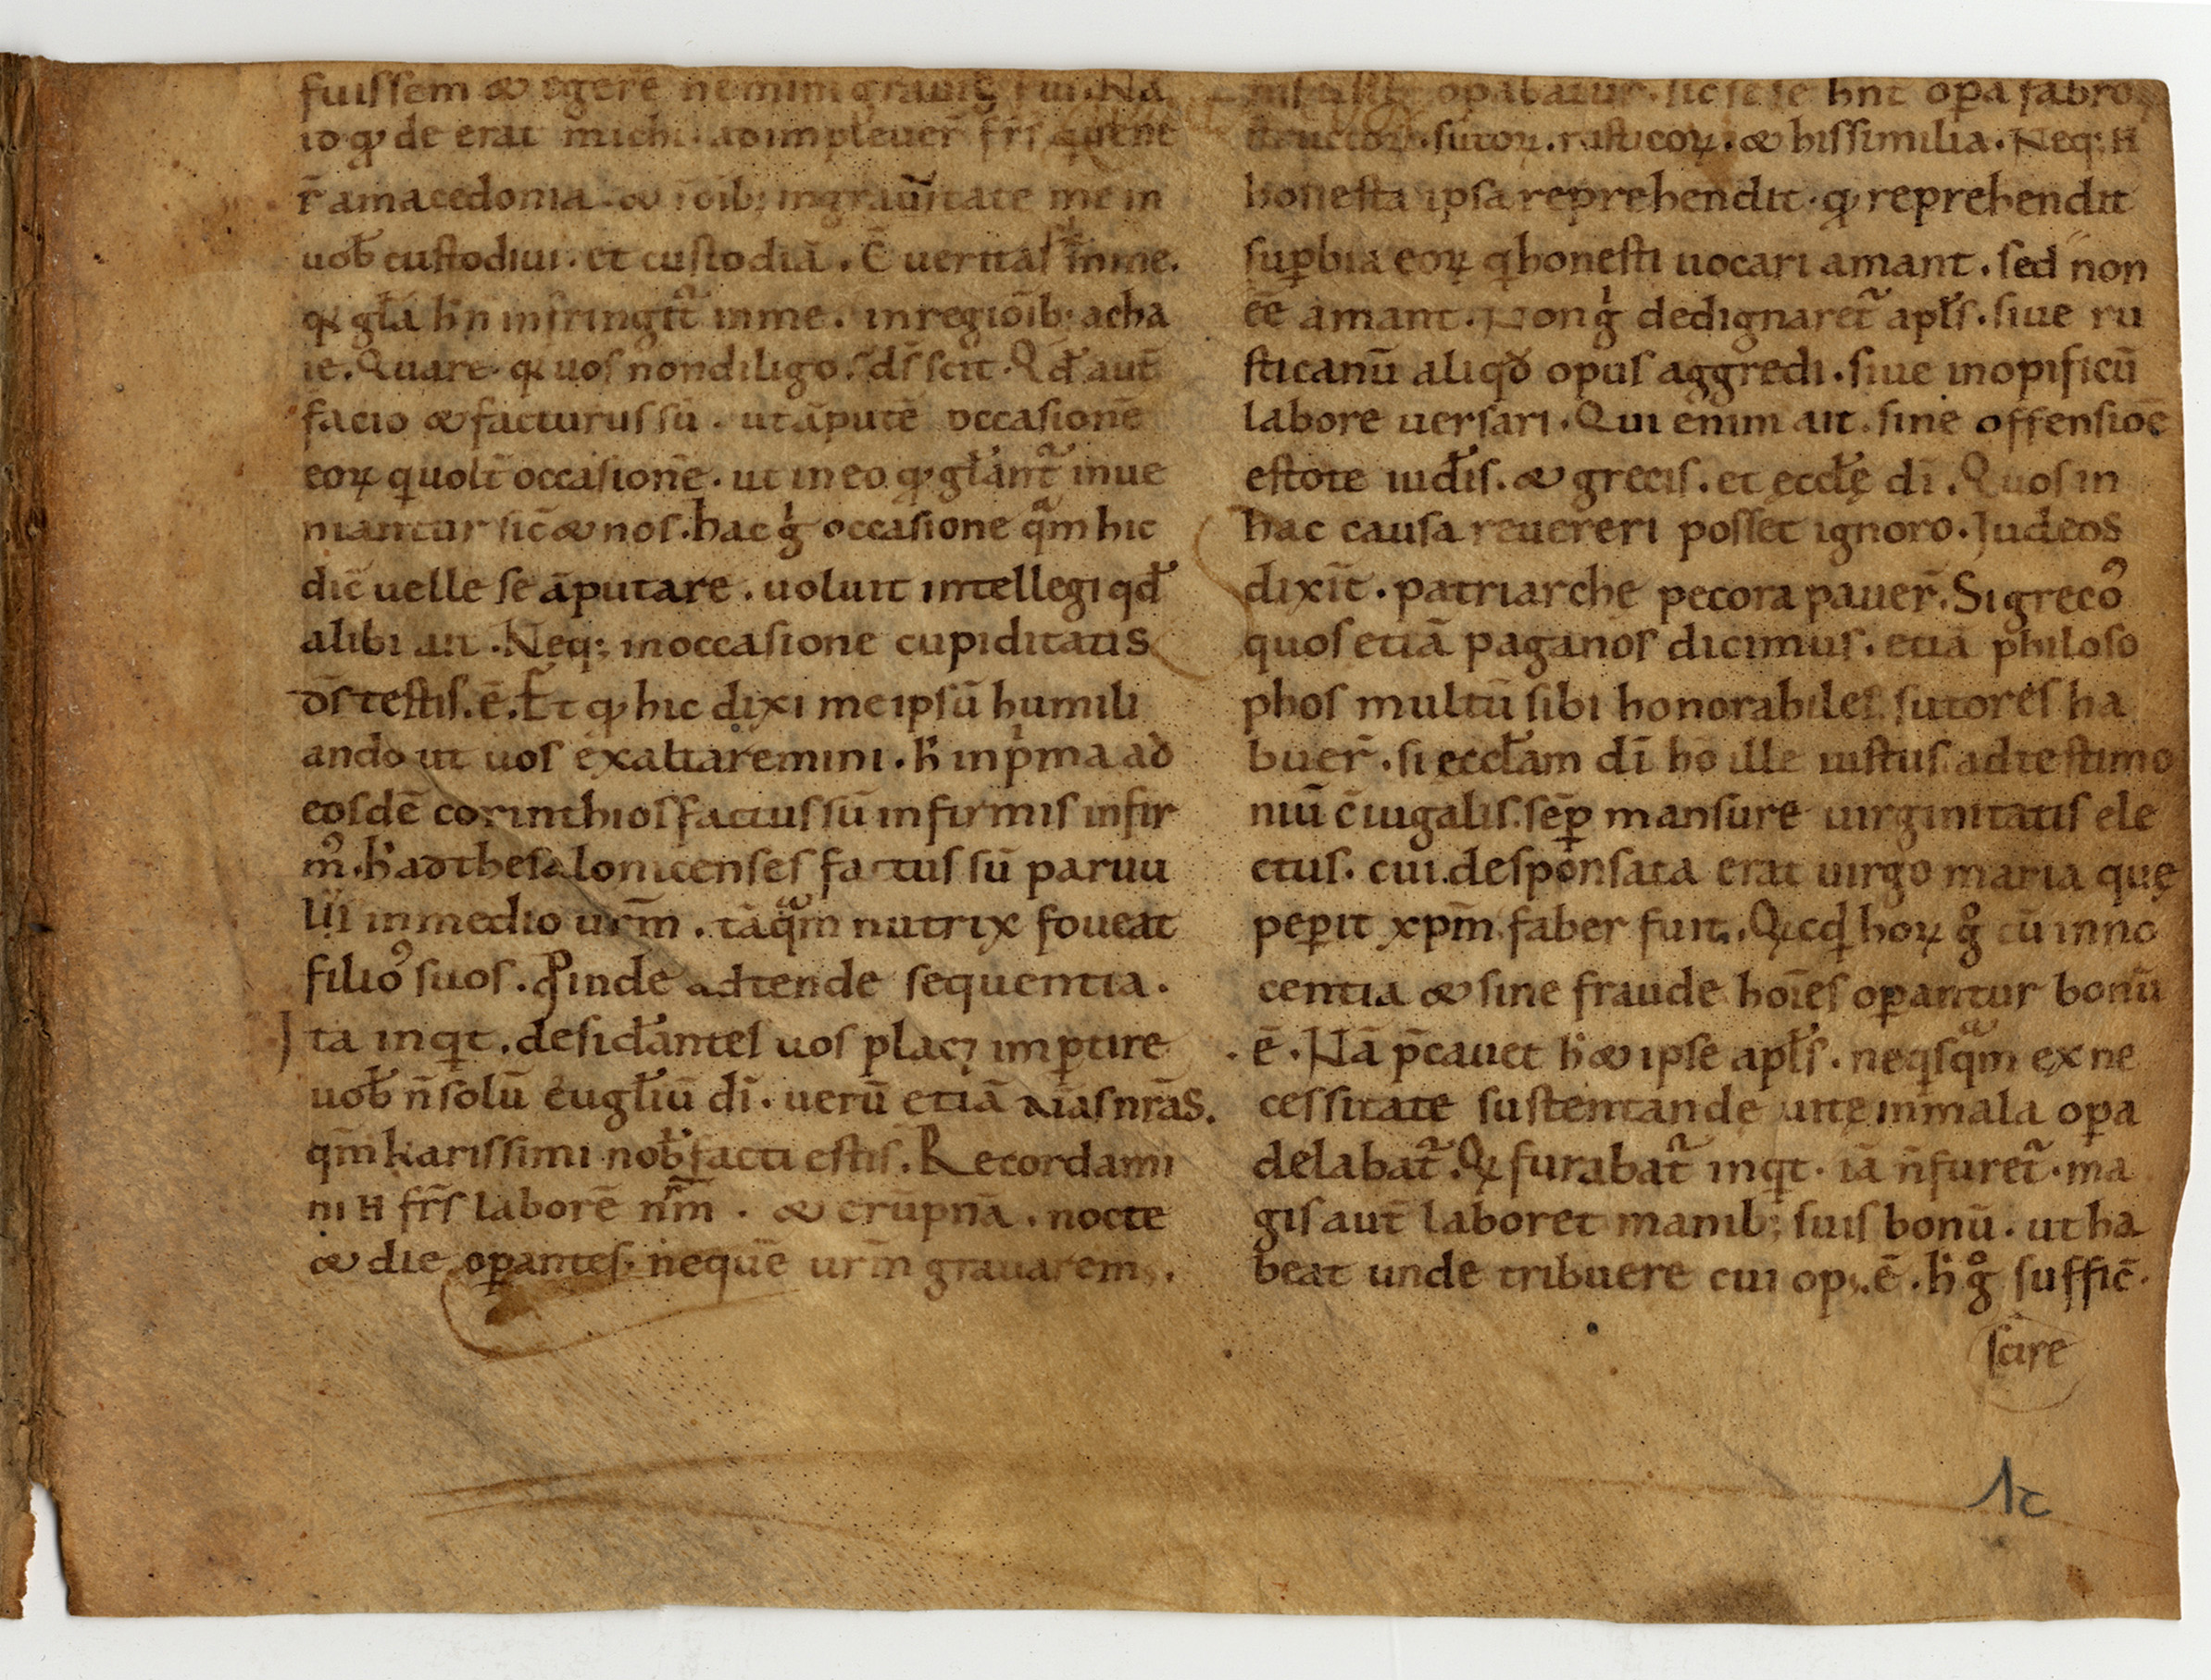 fuissem ⁊ egerē nemini grauis fui. Nā
id qd̛ de erat michi. adimpleuer̄ frs̄ qui uene
r̄ amacedonia. ⁊ ī oīb; ingrauītate mē in
uob̄ custodiui. et custodiā. Ē ueritas in me.
qꝛ gła h̄ n̄ infringet̄ in me. in regiōib; acha
ie. Quare. qꝛ uos non diligo. ds̄ scit. Qd̄ aut̄
facio ⁊ facturus sū. ut āputē occasionē
eoꝝ qui uolt̄ occasionē. ut in eo qd̛ głant̄ inue
niantur sic̄ ⁊ nos. hac gͥ occasione qͣm hic
dic̄ uelle se āputare. uoluit intellegi qd̄
alibi ait. Neq; in occasione cupiditatis
ds̄ testis. ē. Et qd̛ hic dixi me ipsū humili
ando ut uos exaltaremini. h̄ in pͥma ad
eosdē corinthios factus sū infirmis infir
mꝰ. h̄ ad thesalonicenses factus sū paruu
lus in medio urm̄. tāqͣm nutrix foueat
filioꝰ suos. ꝓinde adtende sequentia.
Ita inqt. desidāntes uos placꝫ imꝑtire
uob̄ n̄ solū eugłiū dī. uerū etiā aīas nrās.
qm̄ karissimi nob̄ facti estis. Recordami
ni H frs̄ laborē nrm̄. ⁊ erūpnā. nocte
⁊ die oꝑantes. ne quē urm̄ grauarem.
opabatur. sic sese hn̄t oꝑa fabroꝝ
structoꝝ. sutoꝝ. rusticoꝝ. ⁊ his similia. Neq; H
honesta ipsa reprehendit. qd̛ reprehendit
suꝑbia eoꝝ q honesti uocari amant. sed non
eē amant. Non gͥ dedignaret̄ apłs. siue ru
sticanū aliqd̛ opus aggredi. siue in opificū
labore uersari. Qui enim ait. sine offensiōe
estote iudeīs. ⁊ grecis. et eccłę dī. Quos in
hac causa reuereri posset ignoro. Iudeos
dixīt. patriarche pecora pauer̄. Si grecoꝰ
quos etiā paganos dicimus. etiā philoso
phos multū sibi honorabiles sutores ha
buer̄. si eccłam dī ho ille iustus ad testimo
niū c̄iugalis. sēꝑ mansure uirginitatis ele
ctus. cui desponsata erat uirgo maria quę
peꝑit xpm̄ faber fuit. Qꝛcqd hoꝝ gͦ cū inno
centia ⁊ sine fraude hoīes oꝑantur bonū
ē. Nā p̄cauet h̄ ⁊ ipse apłs. ne qsqͣm ex ne
cessitate sustentande uitę in mala oꝑa
delabat̄. Qꝛ furabat̄ inqt. iā n̄ furet̄. ma
gis aut̄ laboret manib; suis bonū. ut ha
beat unde tribuere cui opꝰ. ē. h̄ gͦ suffic̄.
scire